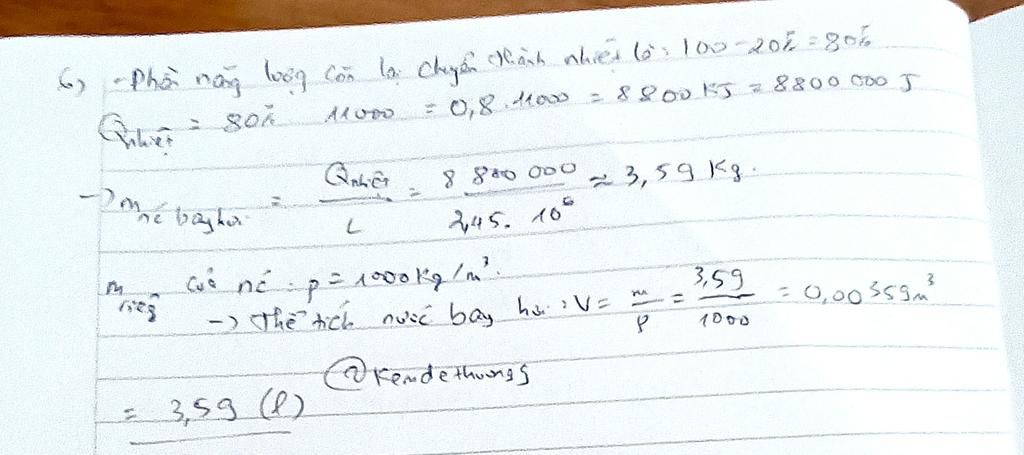 6, - Phần năng lượng còn lại chuyển thành nhiệt là: 100 - 20% = 80%
Qnhiệt = 80% 11000 = 0,8.11000 = 8800 KJ = 8800 000 J
→ m nc bay hơi = Qnhiệt / L = 8 800 000 / 2,45. 10^6 ≈ 3,59 Kg.
m riêng của nc : ρ = 1000 Kg/m³.
→ thể tích nước bay hơi : V = m / ρ = 3,59 / 1000 = 0,00359 m³
@Kemdethuongs
= 3,59 (l)